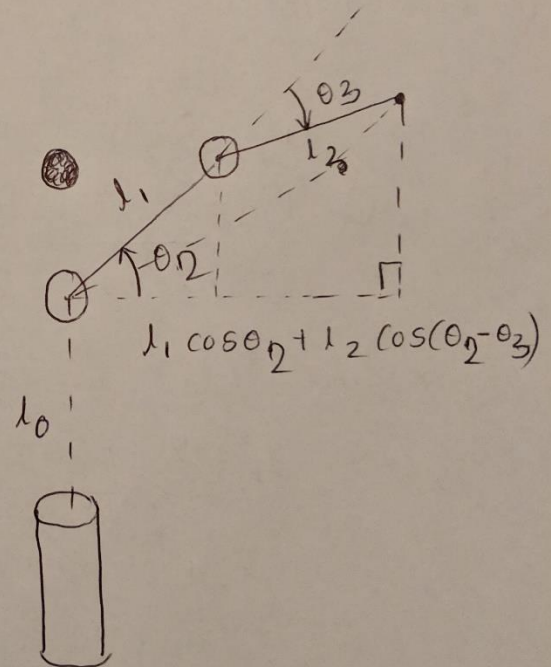 θ3
l2
l1
θ2
l1 cosθ2 + l2 cos(θ2-θ3)
l0